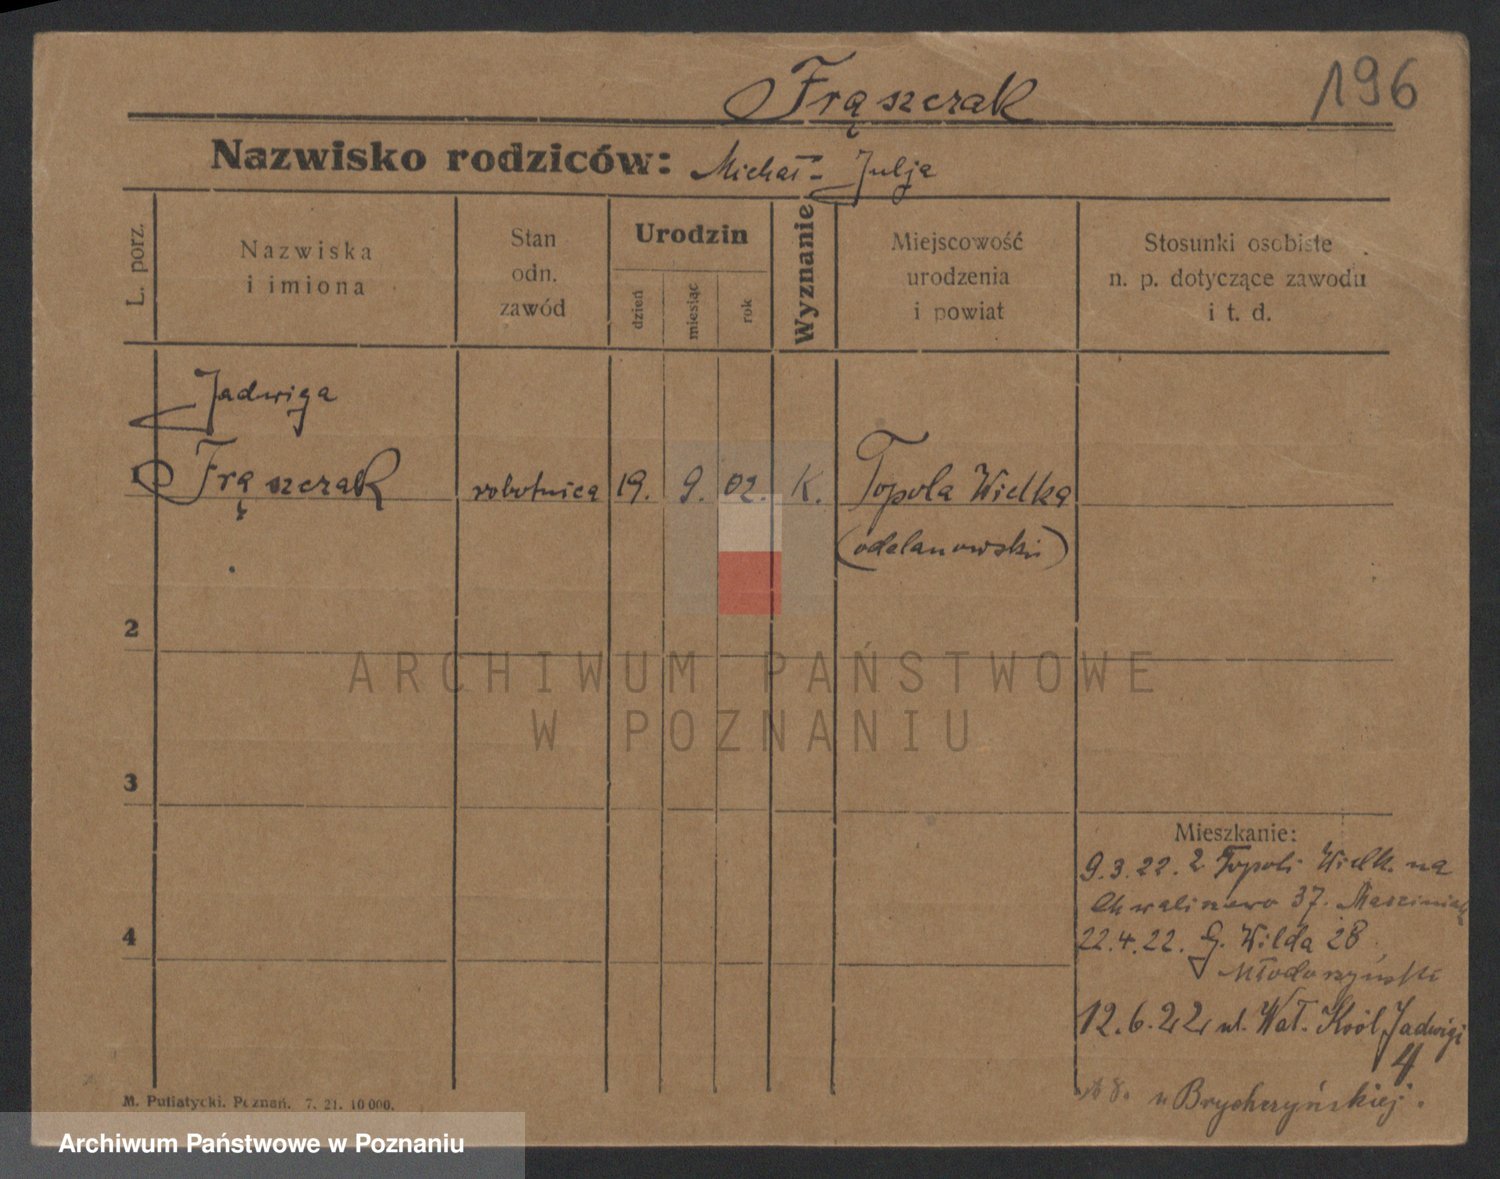 Frąszczak
196
Nazwisko rodziców: Michał - Julja
L. porz.
Nazwiska
i imiona
Stan
odn.
zawód
Urodzin
dzień
miesiąc
rok
Wyznanie
Miejscowość
urodzenia
i powiat
Stosunki osobiste
n. p. dotyczące zawodu
i t. d.
Jadwiga
1 Frąszczak robotnica 19. 9. 02. K. Topola Wielka
(odolanowski)
2
ARCHIWUM PAŃSTWOWE
W POZNANIU
3
Mieszkanie:
9.3.22. z Topoli Wielk. na
Chwaliszewo 37.
4
22.4.22. G. Wilda 28
Młodoszyński
12.6.22 ul. Wał. Król Jadwigi
4
u Brychczyńskiej.
M. Putiatycki. Poznań. 7. 21. 10 000.
Archiwum Państwowe w Poznaniu